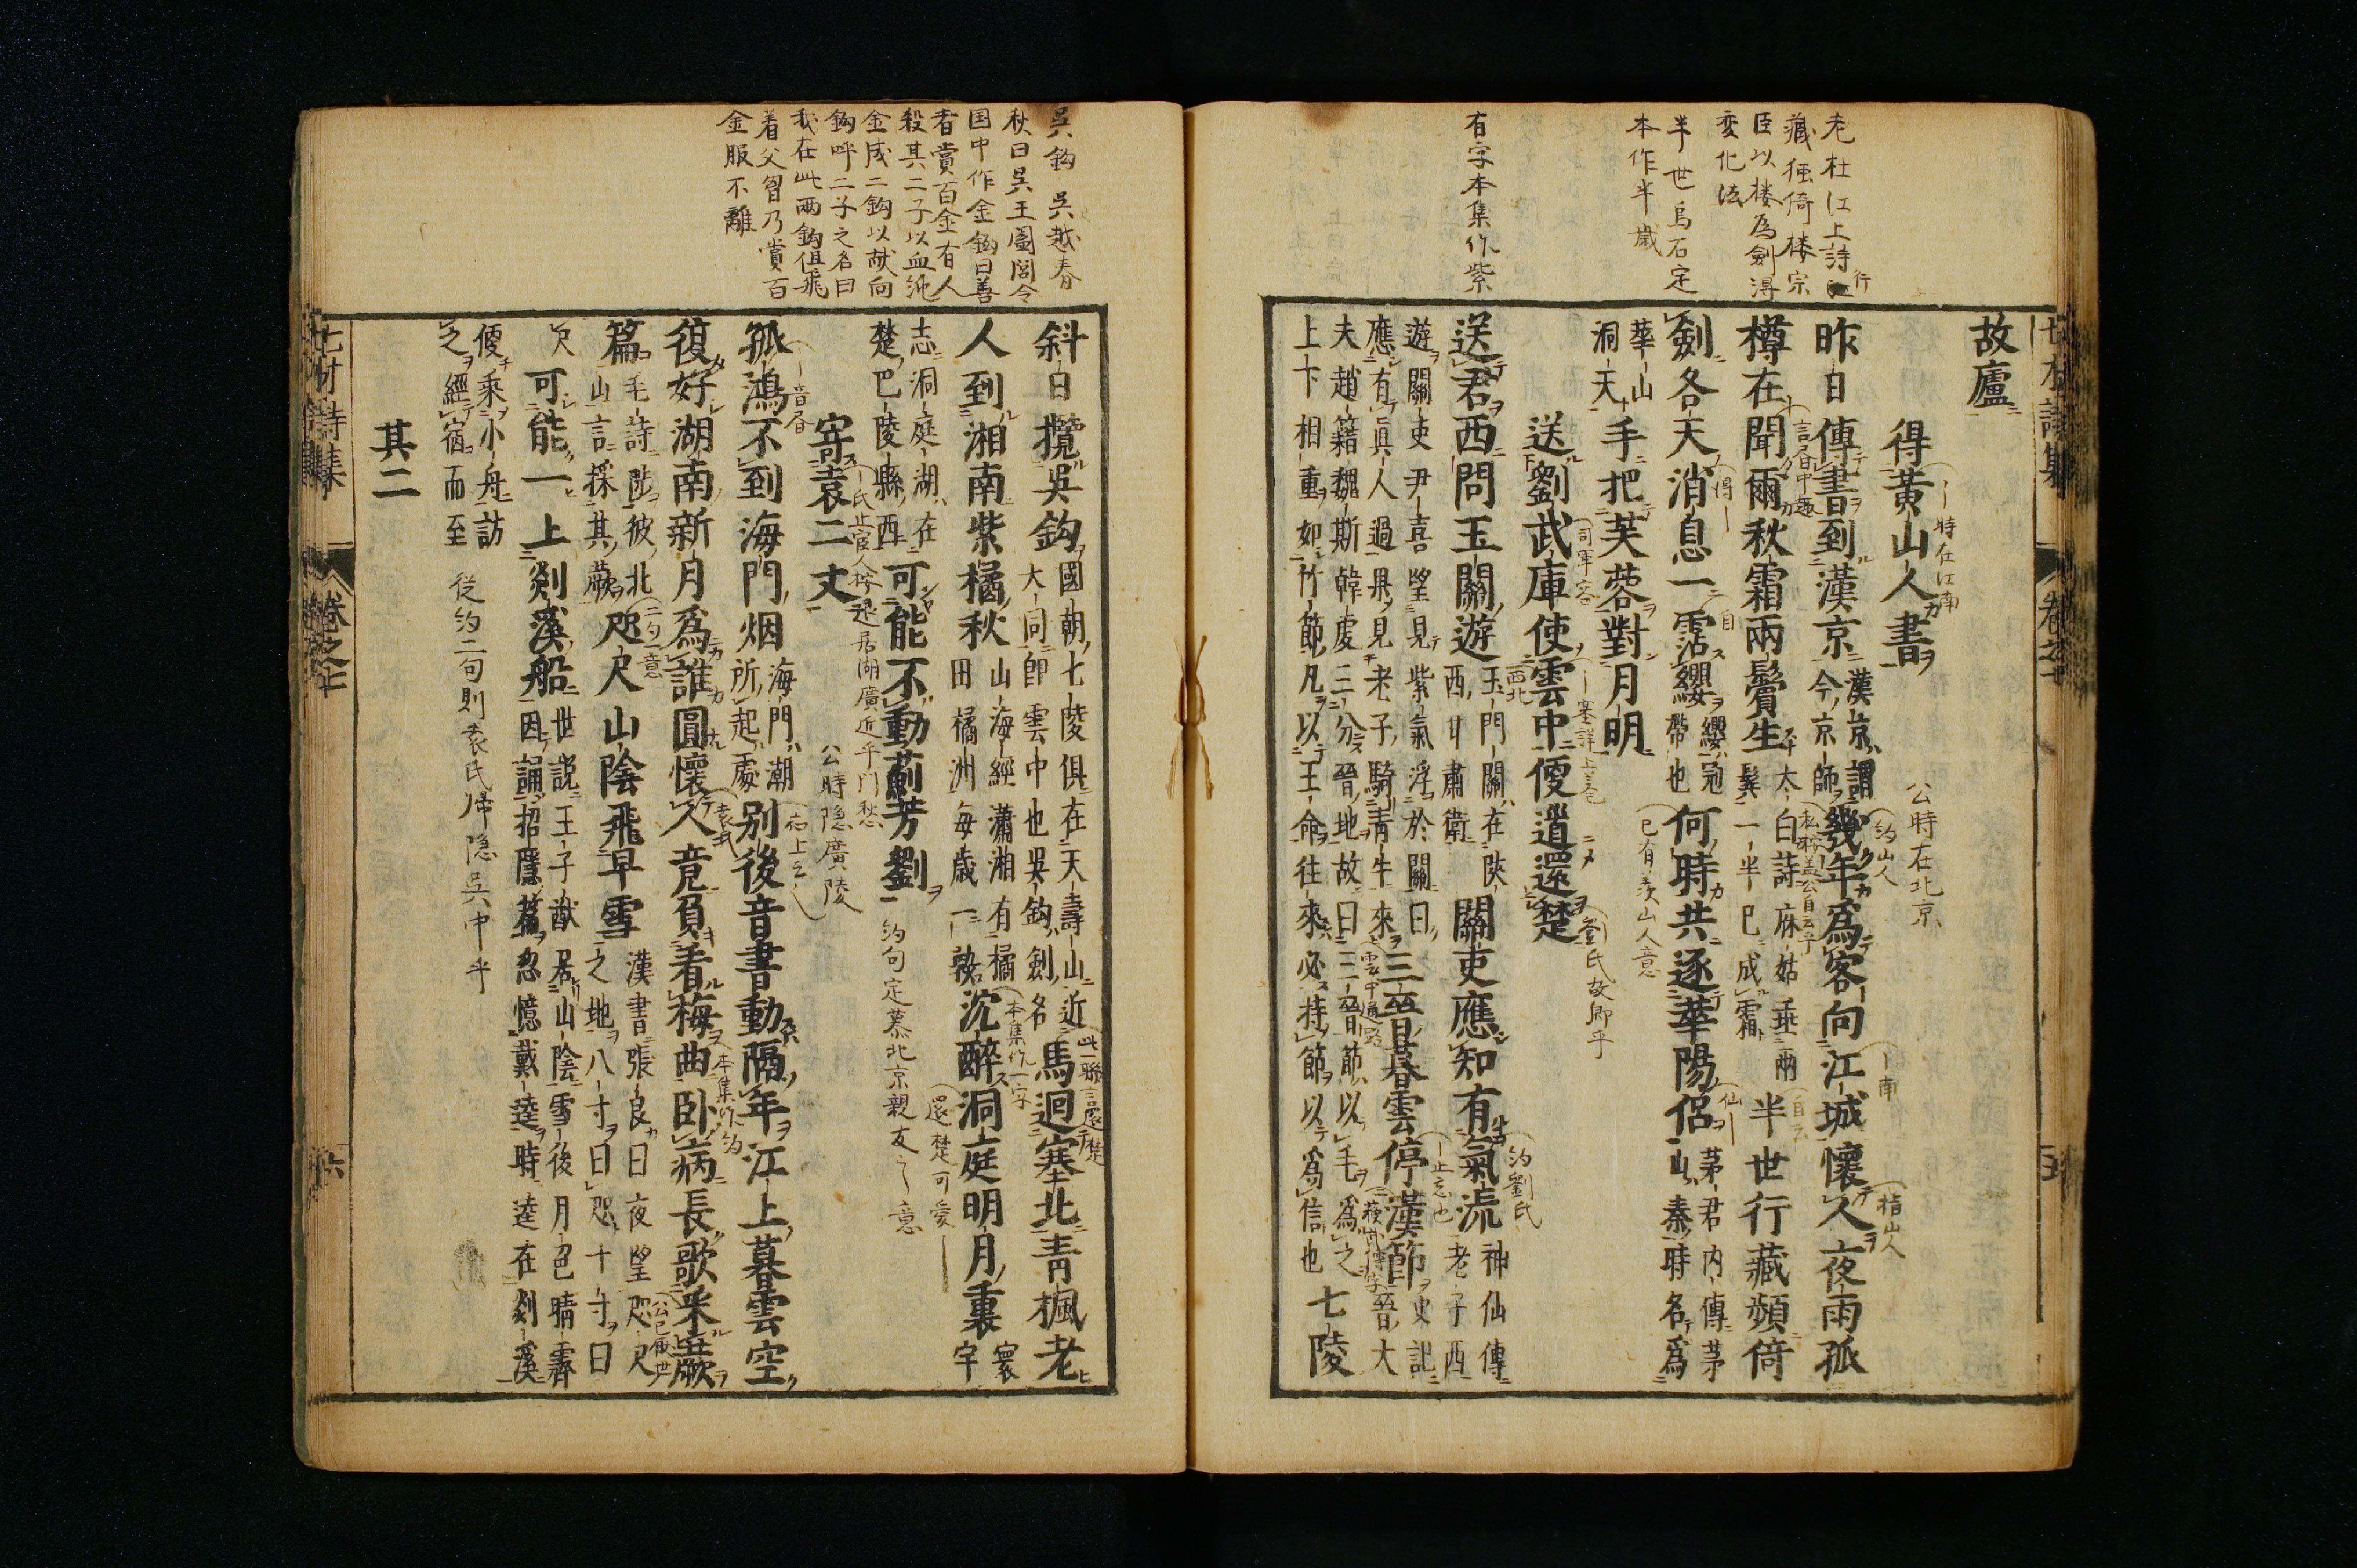 老杜江上詩江行
藏獨倚楼宗
臣以楼為劍得
变化法
半世烏石定
本作半歲
有字本集作紫
七才詩集
卷之七
故廬
得黃山人書
時在江南
公時在北京
昨日傳書到漢京
漢京謂
今京師
幾年為客向江城懷久夜雨孤
約山人
指山人
樽在聞雨秋霜兩鬢生
太白詩麻姑垂兩
鬂一半已成霜
半世行藏頻倚
劍各天消息一霑纓
纓冠
帶也
何時共逐華陽侶
茅君內傳茅
山秦時名為
已有羨山人意
華山
洞天
手把芙蓉對月明
送劉武庫使雲中便道還楚
司軍容
劉氏故鄉乎
送君西問玉關遊
玉門關在陝
西甘肅衛
關吏應知有氣流
神仙傳
老子西
約劉氏
遊關吏尹喜望見紫氣浮於關曰
應有真人過果見老子騎青牛來
三晉暮雲停漢節
史記
晉大
夫趙籍魏斯韓虔三分晉地故曰三晉節以毛為之
上下相重如竹節凡以王命往來必持節以為信也
七陵
吳鈎 吳越春
秋曰吳王闔閭令
国中作金鈎曰善
者賞百金有人
殺其二子以血
金成二鈎以献向
鈎呼二子之名曰
我在此兩鈎俱飛
着父胷乃賞百
金服不離
斜日攬吳鈎
國朝七陵俱在天壽山近
大同卽雲中也吳鈎劍名
馬迴塞北青楓老
此一聯言還楚
人到湘南紫橘秋
山海經瀟湘有橘
田橘洲每歲一熟
沉醉洞庭明月裏
寰
宇
本集作一字
還楚可愛
志洞庭湖在
楚巴陵縣西
可能不動薊芳劉
約句定慕北京親友之意
寄袁二丈
公時隐廣陵
孤鴻不到海門烟
海門潮
所起處
別後音書動隔年江上暮雲空
復好湖南新月為誰圓懷久竟負看梅曲臥病長歌采蕨
本集作約
篇
毛詩陟彼北
山言採其蕨
咫尺山陰飛早雪
漢書張良曰夜望咫尺
之地八寸曰咫十寸曰
二句一意
尺
可能一上剡溪船
世説王子猷居山陰雪後月色晴霽
因誦招隱篇忽憶戴逵時逵在剡溪
便乘小舟訪
之經宿而至
從約二句則袁氏帰隐吳中乎
其二
七才詩集
卷之七
六